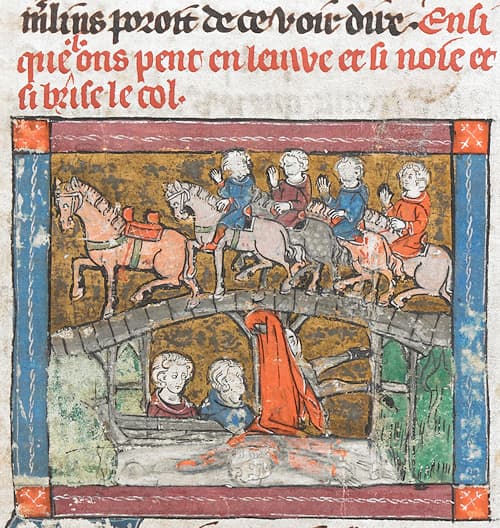 m̄lins poroit de ce voir dire. Ensi
que ons pent en leuwe et si noie et
si brise le col.